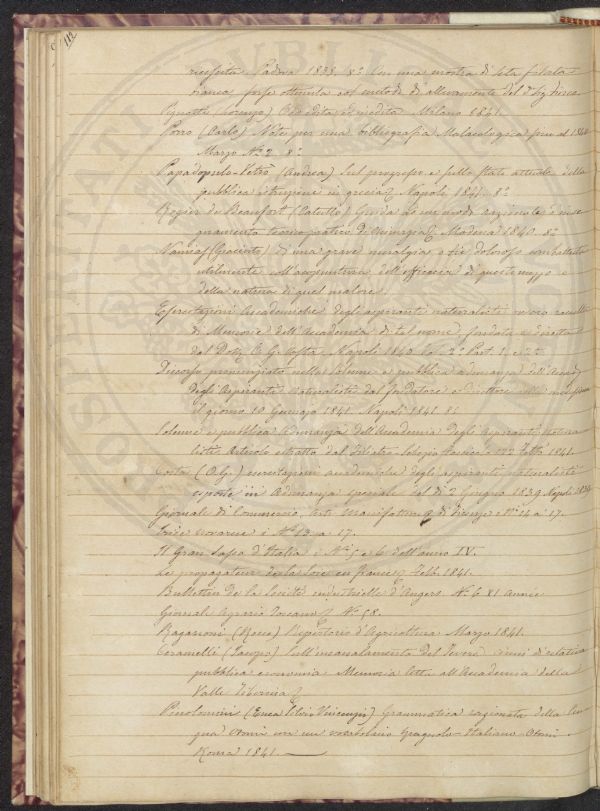 112
Padova 1839. 8.° Con una mostra di seta filata
bianca forse ottenuta col metodo di allevamento del
(Lorenzo) Ode edita ed inedita Milano 1841.
Porro (Carlo) Note per una bibliografia Malacologica fino al
Marzo N.° 2. 8.°
Papadopulo-Vretò (Andrea) Sul progresso e sullo stato attuale della
pubblica istruzione in grecia Napoli 1841. 8.°
de Beaufort (Catullo) Guida
teorico pratico di Chirurgia Modena 1840. 8.°
Namias (Giacinto) di una grave nevralgia, o tic doloroso combattuto
utilmente coll'agopuntura, dell'efficacia di questo mezzo e
della natura di quel malore.
Esercitazioni Accademiche degli aspiranti naturalisti
di Memorie dell'Accademia di tal nome, fondata e diretta
dal Dott. O. G. Costa. Napoli 1840 Vol. 2.° Part. 1. e 2.
Discorso pronunziato nella solenne e pubblica adunanza dell'Accad.
degli Aspiranti naturalisti dal fondatore e direttore della medesima
il giorno 10 Gennajo 1841. Napoli 1841. 8.°
Solenne e pubblica Adunanza dell'Accademia degli Aspiranti natura
listi Articolo estratto dal Filiatre-Sebezio fascicolo 122 Febb. 1841.
Costa (O. G.) esercitazioni accademiche degli aspiranti naturalisti
esposte in Adunanza generale del dì 2 Giugno 1839 Napoli 1839
Giornale di Commercio, Arti Manifatture di Firenze i N.i 14 a 17.
Iride novarese i N.i 13 a 17.
Il Gran Sasso d'Italia i N.i 5 e 6 dell'anno IV.
Le propagateur de la Soie en france Feb. 1841.
Bulletin de la Société industrielle d'Angers N.° 6 XI Année
Giornale Agrario Toscano N.° 58.
Ragazzoni (Rocco) Repertorio d'Agricoltura Marzo 1841.
Ceramelli (Jacopo) Sull'incanalamento del Tevere cenni di relativa
pubblica economia. Memoria letta all'Accademia della
Valle Tiberina
Piccolomini (Enea Silvio Vincenzo) Grammatica ragionata della lin
gua Otomi con un vocabolario Spagnolo-Italiano-Otomi
Roma 1841.